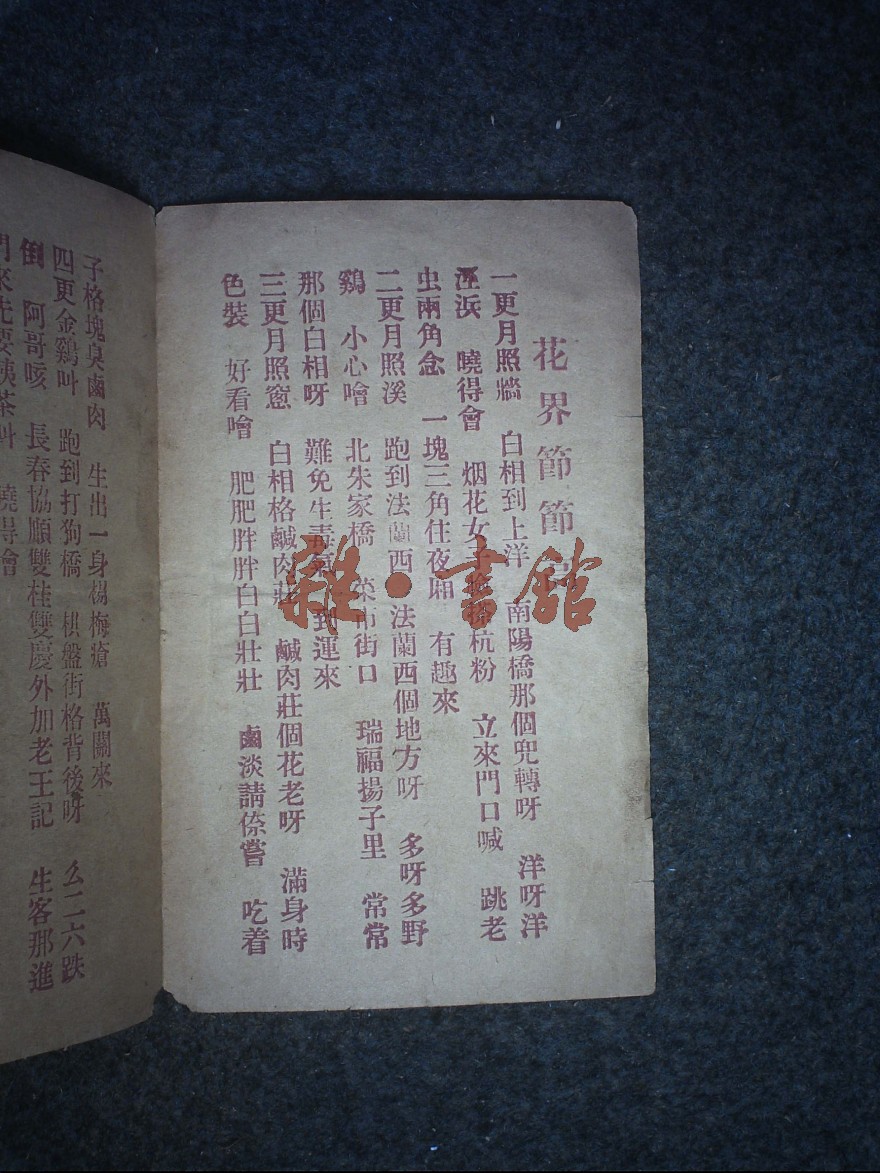 花界節節
一更月照牆 白相到上洋 南陽橋那個兜轉呀 洋呀洋
涇浜 曉得會 烟花女子 杭粉 立來門口喊 跳老
虫兩角念 一塊三角住夜廂 有趣來
二更月照溪 跑到法蘭西 法蘭西個地方呀 多呀多野
鷄 小心噲 北朱家橋 菜市街口 瑞福揚子里 常常
那個白相呀 難免生毒 到運來
三更月照窓 白相格鹹肉莊 鹹肉莊個花老呀 滿身時
色裝 好看噲 肥肥胖胖白白壯壯 鹵淡請倷嘗 吃着
子格塊臭鹵肉 生出一身楊梅瘡 萬關來
四更金鷄叫 跑到打狗橋 棋盤街格背後呀 么二六跌
倒 阿哥咳 長春協順雙桂雙慶外加老王記 生客那進
門來先要 茶叫 曉得會
雜·書館